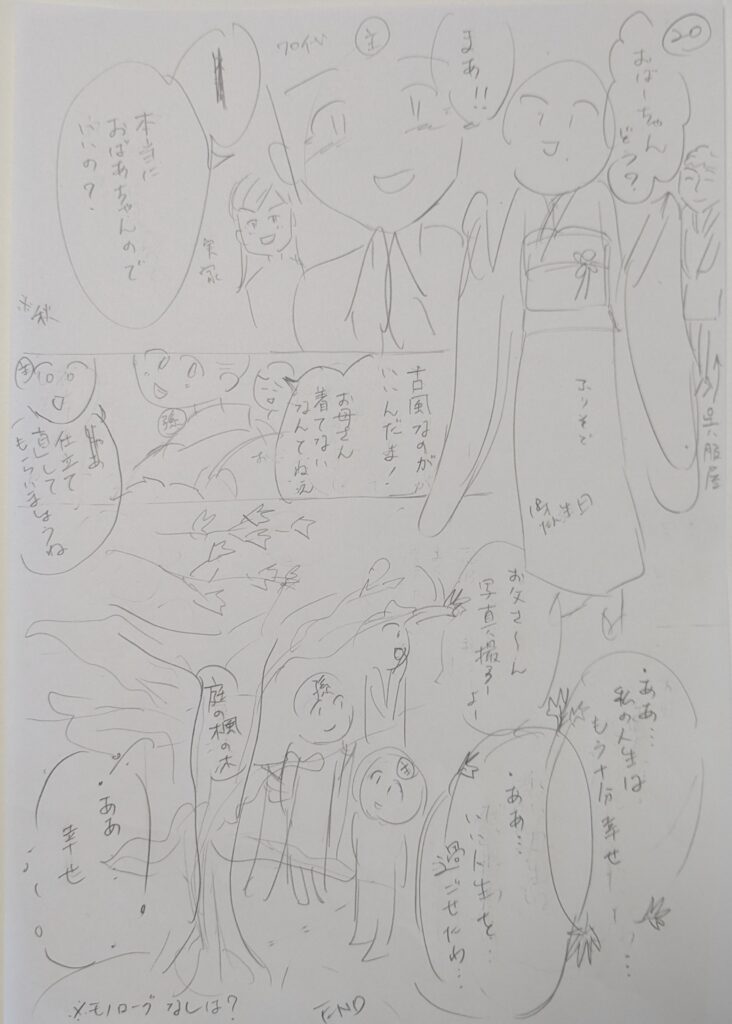 20
おばーちゃん
どう?
まあ!!
主
本当に
おばあちゃんので
いいの?
実家
※秋
呉服屋
ふりそで
古風なのが
いいんだよ!
お母さん
着てない
なんてねぇ
強
主
仕立て
直して
もらいましょうね
お父さ〜ん
写真撮るー
よー
・ああ…
私の人生は
もう十分幸せ
・ああ…
いい人生を
過ごせたわ…
孫
主
庭の楓の木
・ああ
幸せ
※モノローグなしは?
END